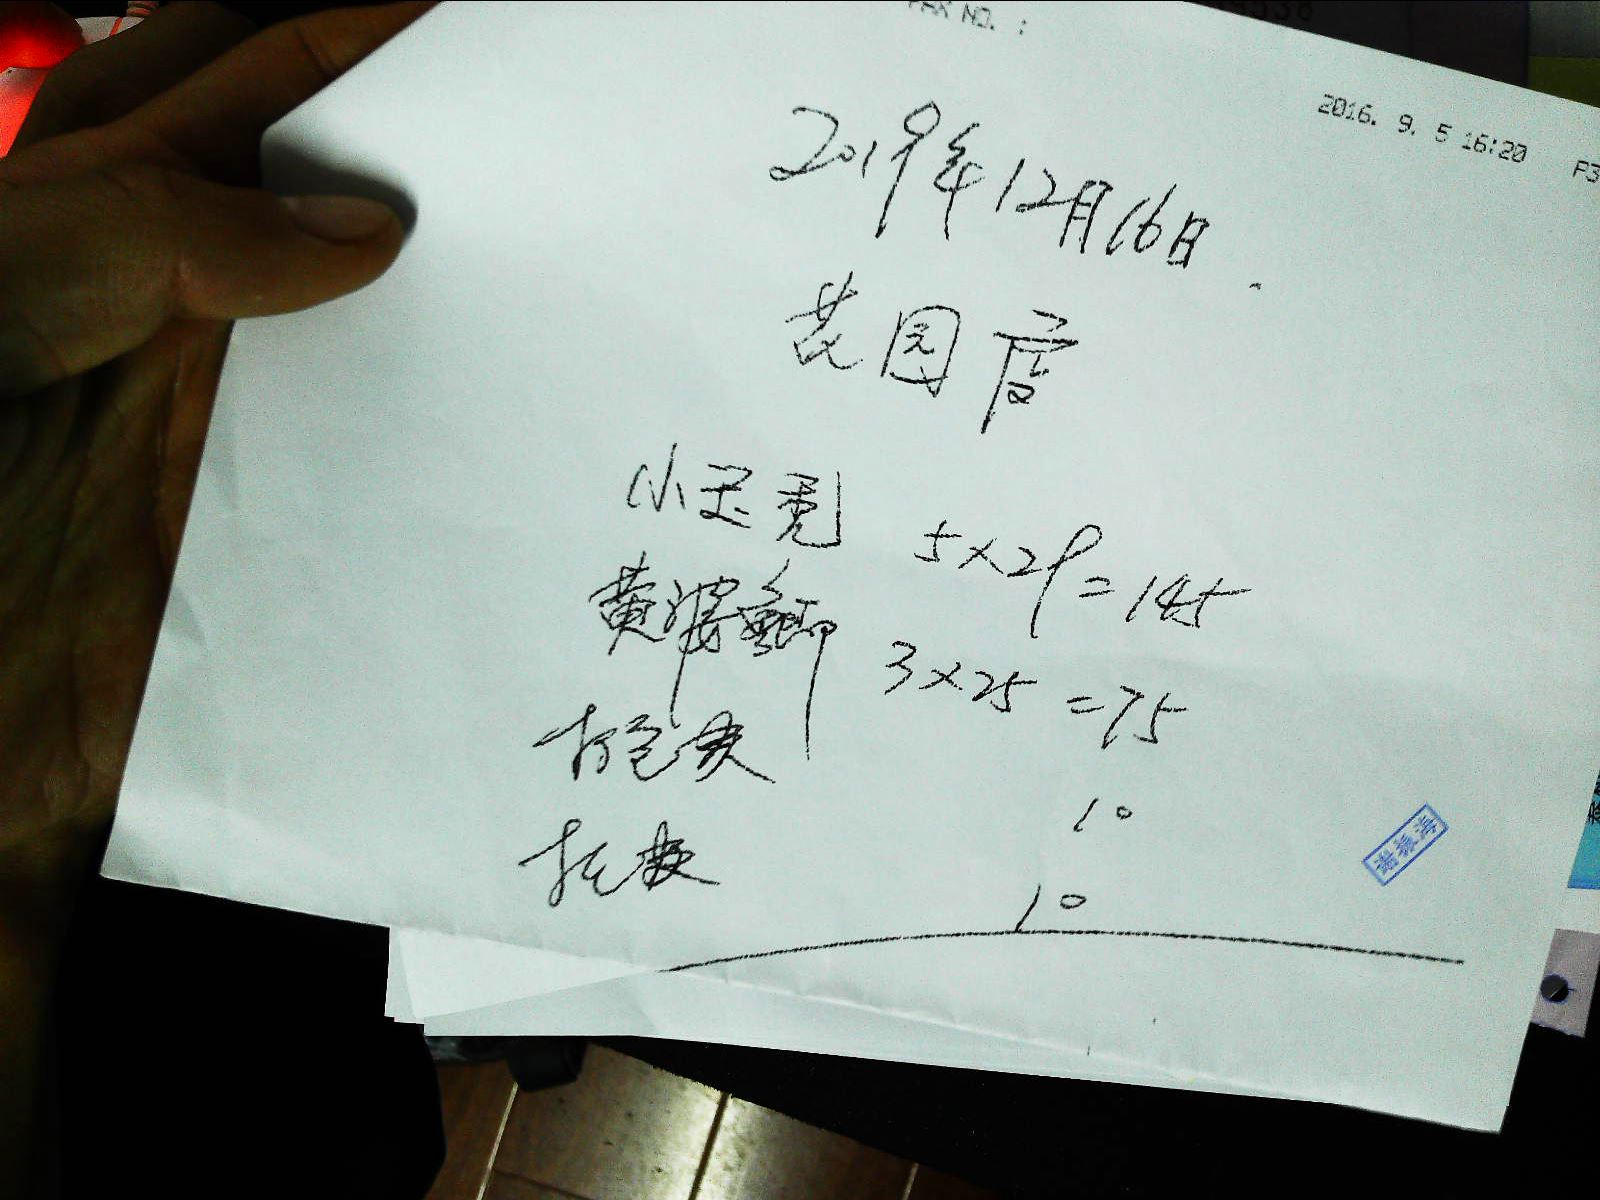 FAX NO. :
2016. 9. 5 16:20 P3
2019年12月16日
花园店
小玉 5×29=145
黄 3×25=75
打包费 10
10